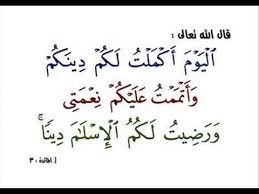 قال الله تعالى :
ٱلْيَوْمَ أَكْمَلْتُ لَكُمْ دِينَكُمْ
وَأَتْمَمْتُ عَلَيْكُمْ نِعْمَتِى
وَرَضِيتُ لَكُمُ ٱلْإِسْلَٰمَ دِينًا ۚ
[ المائدة : ٣